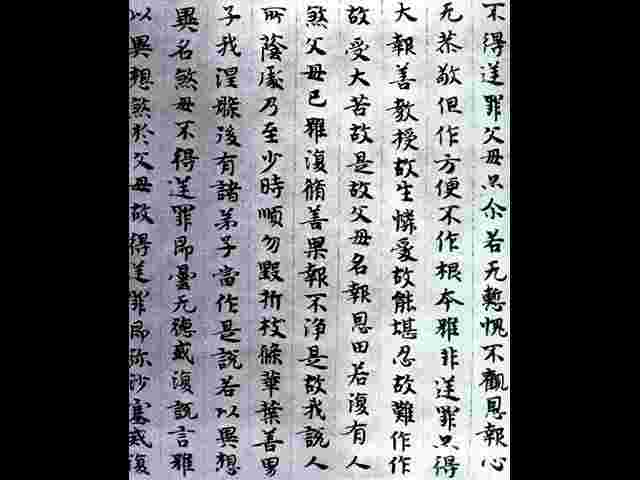 不得逆罪父母只尒若无慙愧不觀恩報心
无恭敬但作方便不作根本雖非逆罪只得
大報善教授故生憐愛故能堪忍故難作作
故受大苦故是故父母名報恩田若復有人
煞父母已雖復脩善果報不淨是故我說人
所蔭處乃至少時順勿毀折枝條華葉善男
子我涅槃後有諸弟子當作是說若以異想
異名煞母不得逆罪即曇无德或復說言雖
以異想煞於父母故得逆罪即弥沙塞或復